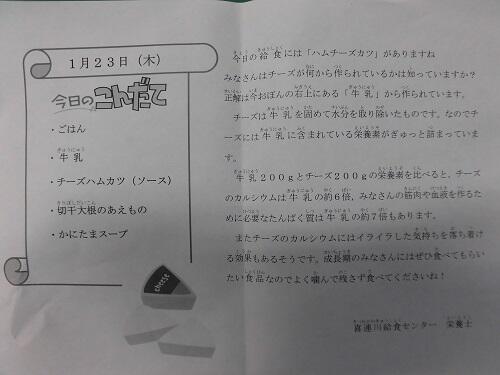 1月23日（木）
今日のこんだて
・ごはん
・牛乳
・チーズハムカツ（ソース）
・切干大根のあえもの
・かにたまスープ
cheese
今日の給食には「ハムチーズカツ」がありますね
みなさんはチーズが何から作られているかは知っていますか？
正解は今おぼんの右上にある「牛乳」から作られています。
チーズは牛乳を固めて水分を取り除いたものです。なのでチ
ーズには牛乳に含まれている栄養素がぎゅっと詰まっていま
す。
牛乳200gとチーズ200gの栄養素を比べると、チーズ
のカルシウムは牛乳の約6倍、みなさんの筋肉や血液を作るた
めに必要なたんぱく質は牛乳の約7倍もあります。
またチーズのカルシウムにはイライラした気持ちを落ち着け
る効果もあるそうです。成長期のみなさんにはぜひ食べてもらい
たい食品なのでよく噛んで残さず食べてくださいね！
喜連川給食センター　栄養士